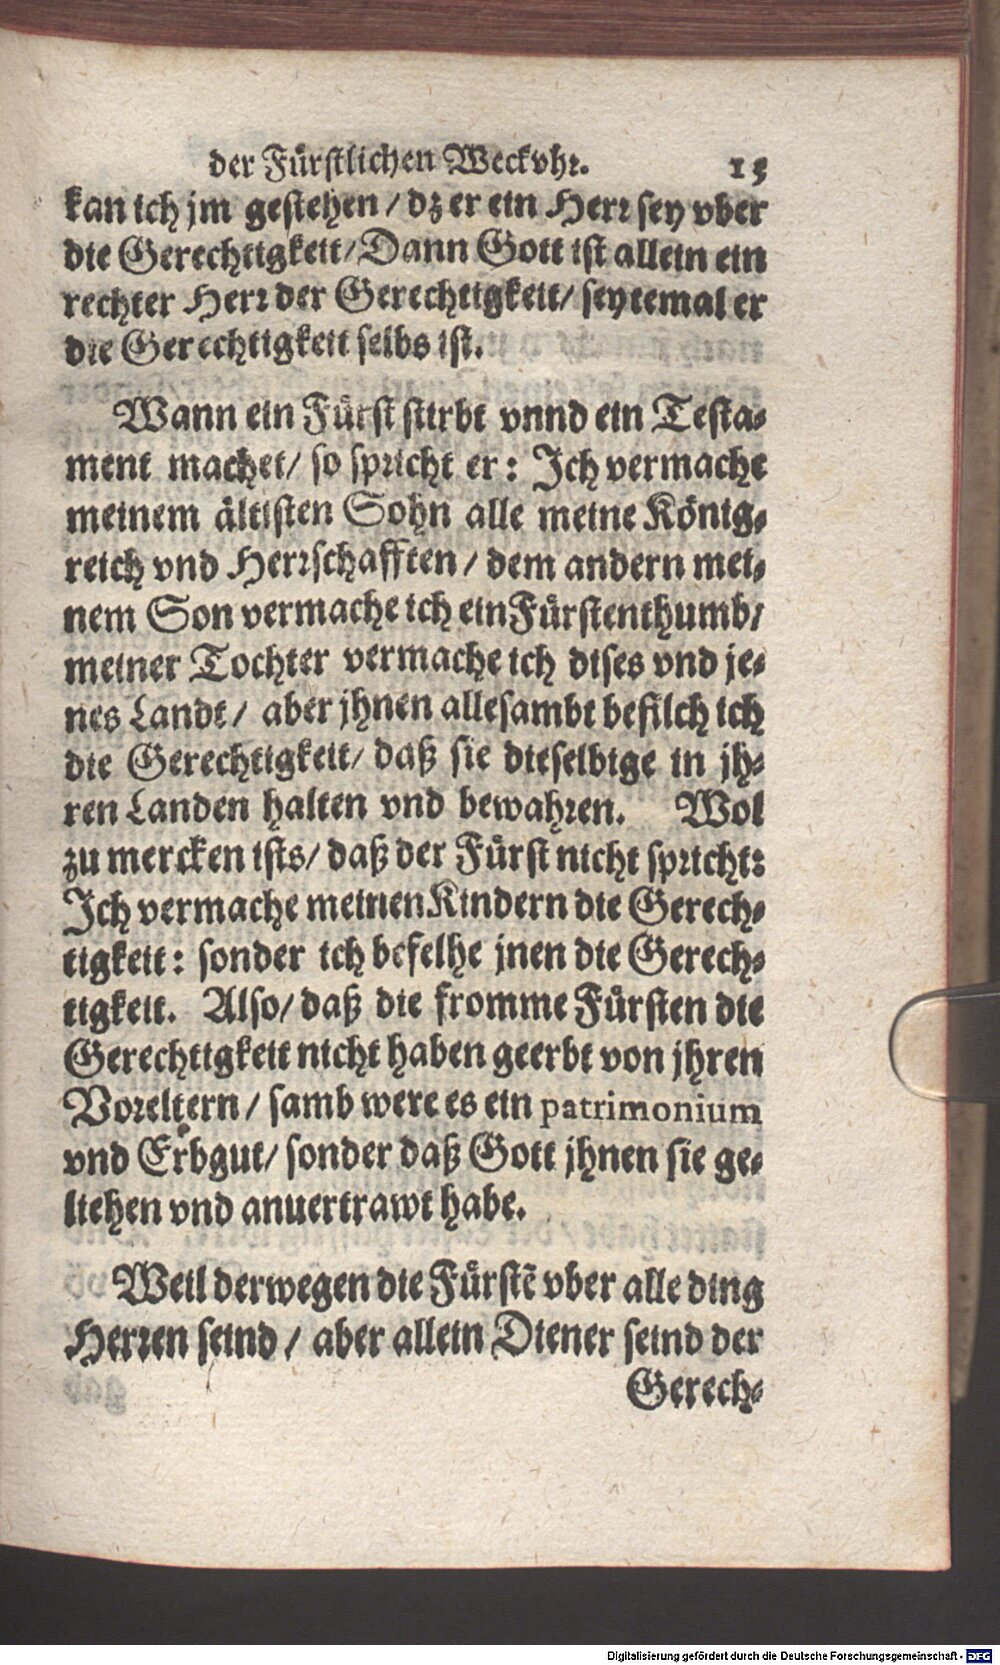 der Fürstlichen Weckvhr. 15
kan ich jm gestehen / dz er ein Herr sey vber
die Gerechtigkeit / Dann Gott ist allein ein
rechter Herr der Gerechtigkeit / seytemal er
die Gerechtigkeit selbs ist.
Wann ein Fürst stirbt vnnd ein Testa-
ment machet / so spricht er : Ich vermache
meinem ältisten Sohn alle meine König-
reich vnd Herrschafften / dem andern mei-
nem Son vermache ich ein Fürstenthumb /
meiner Tochter vermache ich dises vnd je-
nes Landt / aber jhnen allesambt befilch ich
die Gerechtigkeit / daß sie dieselbige in jh-
ren Landen halten vnd bewahren. Wol
zu mercken ists / daß der Fürst nicht spricht:
Ich vermache meinen Kindern die Gerech-
tigkeit : sonder ich befelhe jnen die Gerech-
tigkeit. Also / daß die fromme Fürsten die
Gerechtigkeit nicht haben geerbt von jhren
Voreltern / samb were es ein patrimonium
vnd Erbgut / sonder daß Gott jhnen sie ge-
liehen vnd anuertrawt habe.
Weil derwegen die Fürstē vber alle ding
Herren seind / aber allein Diener seind der
Gerech-
Digitalisierung gefördert durch die Deutsche Forschungsgemeinschaft - DFG